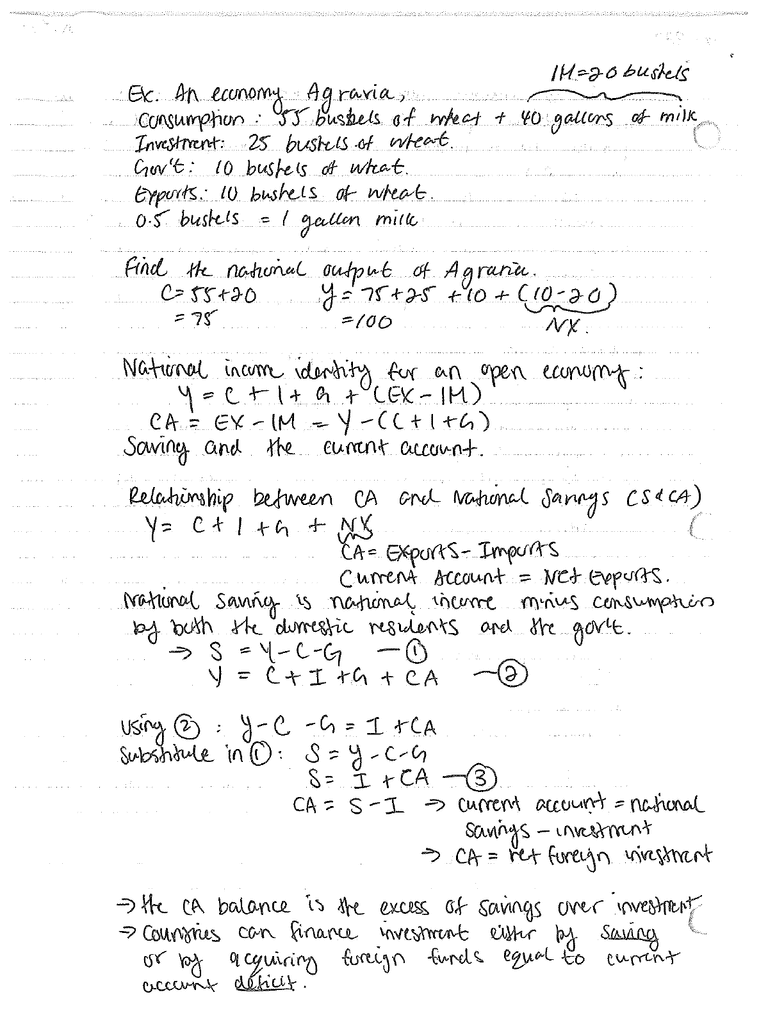 IM=20 bushels
Ex. An economy Agraria,
Consumption : 55 bushels of wheat + 40 gallons of milk
Investment: 25 bushels of wheat.
Gov't: 10 bushels of wheat.
Exports: 10 bushels of wheat.
0.5 bushels = 1 gallon milk
Find the national output of Agraria.
C=55+20 Y= 75+25 +10 + (10-20)
=75 =100 NX.
National income identity for an open economy:
Y = C + I + G + (EX - IM)
CA = EX - IM = Y - (C+I+G)
Saving and the current account.
Relationship between CA and National Savings (S & CA)
Y= C + I + G + NX
CA= Exports - Imports
Current Account = Net Exports.
National Saving is national income minus consumption
by both the domestic residents and the gov't.
→ S = Y-C-G —①
Y = C + I + G + CA —②
Using ② : Y-C -G = I + CA
Substitute in ①: S = Y-C-G
S= I + CA —③
CA = S-I → current account = national
savings - investment
→ CA = net foreign investment
→ the CA balance is the excess of savings over investment
→ Countries can finance investment either by saving
or by acquiring foreign funds equal to current
account deficit.